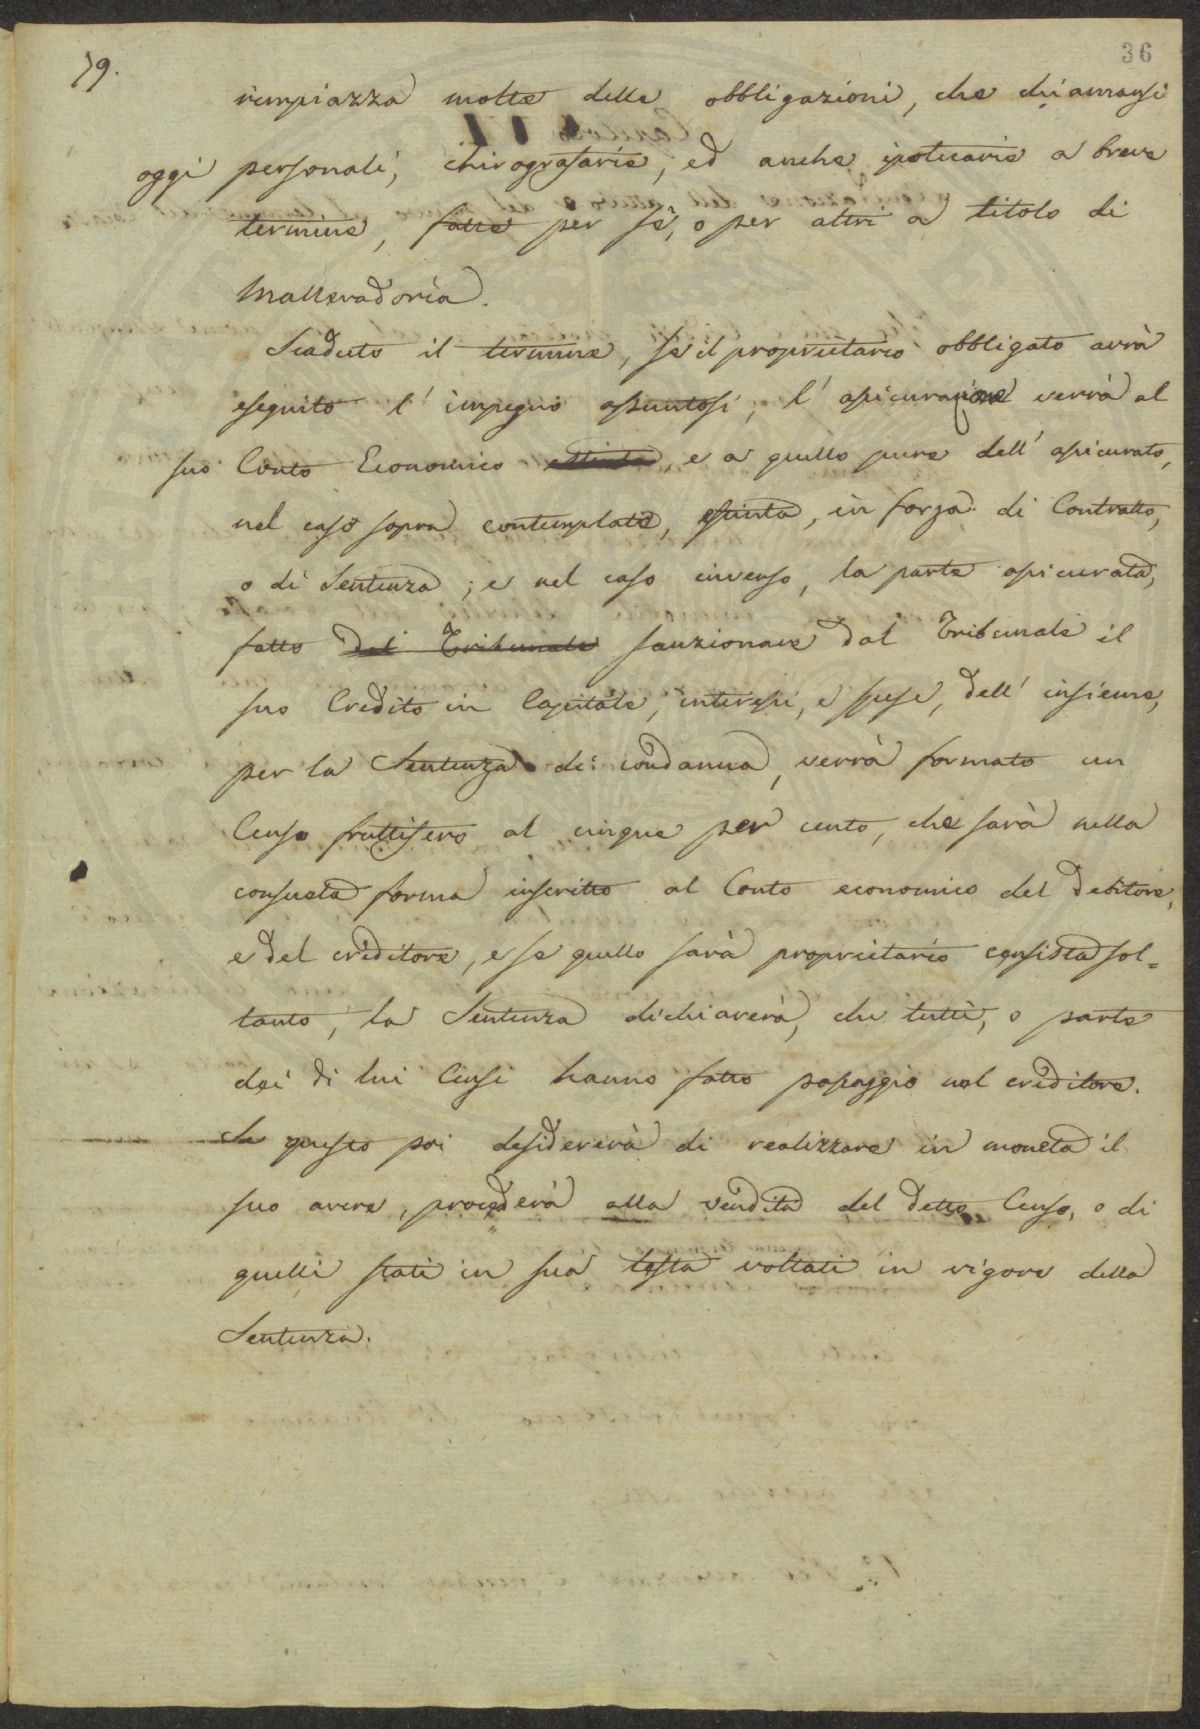 79.
36
rimpiazza molte delle obbligazioni, che chiamansi
oggi personali, chirografarie, ed anche ipotecarie a breve
termine, fatte per se, o per altri a titolo di
Mallevadoria.
Scaduto il termine, se il proprietario obbligato avrà
eseguito l' impegno assuntosi, l' assicurazione verrà al
suo Conto Economico estinta, e a quello pure dell' assicurato,
nel caso sopra contemplato, estinta, in forza di Contratto,
o di Sentenza; e nel caso inverso, la parte assicurata,
fatto dal Tribunale sanzionare dal Tribunale il
suo Credito in Capitale, interessi, e spese, dell' insieme,
per la Sentenza di condanna, verrà formato un
Censo fruttifero al cinque per cento, che sarà nella
consueta forma inscritto al Conto economico del debitore,
e del creditore, e se quello sarà proprietario censista sol=
tanto, la Sentenza dichiarerà, che tutti, o parte
dei di lui Censi hanno fatto passaggio nel creditore.
Se questo poi desidererà di realizzare in moneta il
suo avere, procederà alla vendita del detto Censo, o di
quelli stati in sua testa voltati in vigore della
Sentenza.